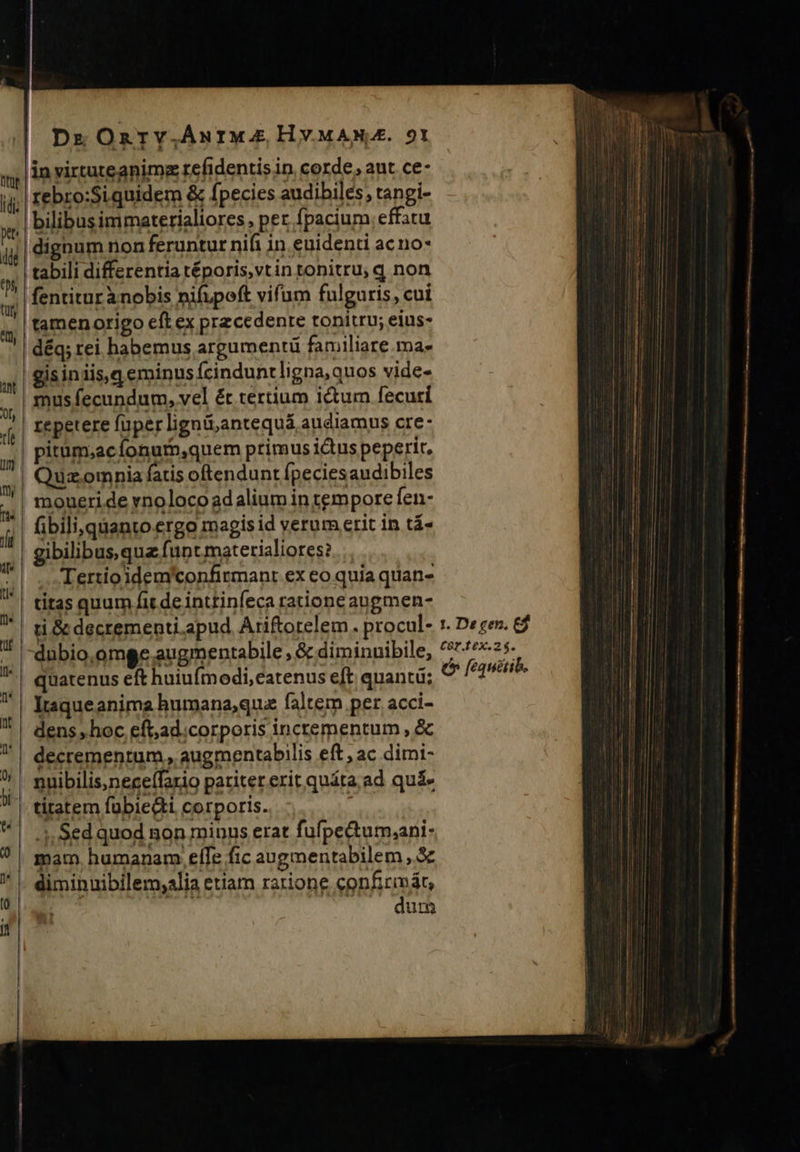 DE ORTV ANIMÆ HVMANÆ. 91
in virtute animæ reſidentis in corde, aut ce-
rebro: Siquidem & ſpecies audibiles, tangi-
bilibus immaterialiores, per ſpacium effatu
dignum non feruntur niſi in euidenti ac no-
tabili differentia tẽporis, vt in tonitru, q non
ſentitur à nobis niſi poſt viſum fulguris, cui
tamen origo eſt ex præcedente tonitru; eiuſ-
dẽq; rei habemus argumentũ familiare ma-
gis in iis, q eminus ſcindunt ligna, quos vide-
mus ſecundum, vel ẽt tertium ictum ſecuri
repetere ſuper lignũ, antequã audiamus cre-
pitum, ac ſonum, quem primus ictus peperit.
Quæ omnia ſatis oſtendunt ſpecies audibiles
moueri de vno loco ad alium in tempore ſen-
ſibili, quanto ergo magis id verum erit in tã-
gibilibus, quæ ſunt materialiores?
Tertio idem confirmant ex eo quia quan-
titas quum ſit de intrinſeca ratione augmen-
ti & decrementi apud Ariſtotelem. procul- 1. De gen. &
dubio, omne augmentabile, & diminuibile, cor. tex. 25.
quatenus eſt huiuſmodi, eatenus eſt quantũ; & ſequẽtib.
Itaque anima humana, quæ ſaltem per acci-
dens, hoc eſt, ad corporis incrementum, &
decrementum, augmentabilis eſt, ac dimi-
nuibilis, neceſſario pariter erit quãta ad quã-
titatem ſubiecti corporis.
Sed quod non minus erat ſuſpectum, ani-
mam humanam eſſe ſic augmentabilem, &
diminuibilem, alia etiam ratione confirmãt,
dum